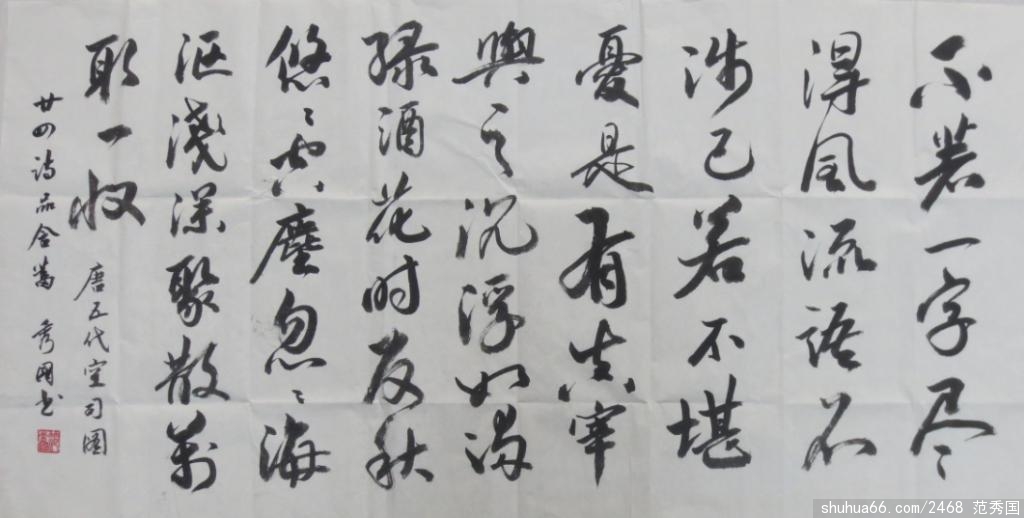 不著一字尽
得风流语不
涉己若不堪
憂是有真宰
與之沉浮如满
绿酒花时反秋
悠〻空塵忽〻海
沤淺深聚散萬
取一收 唐五代空司图
廿四诗品含蓄 秀國书
shuhua66.com/2468 范秀国